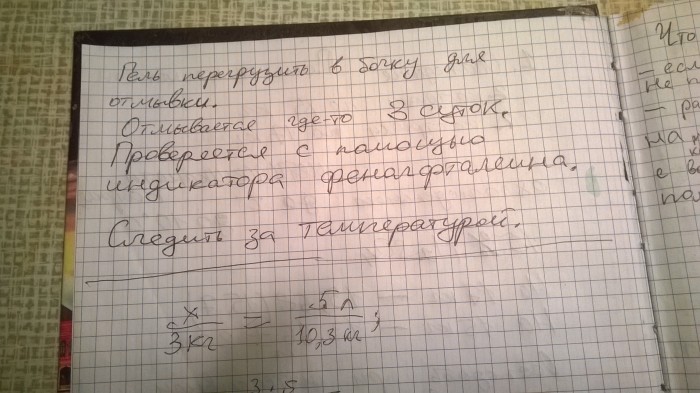 Гель перегрузить в бочку для
отмывки.
Отмывается где-то 3 суток.
Проверяется с помощью
индикатора фенолфталеина.
Следить за температурой.
x/3кг = 5 л/10,3 кг;
3 · 5
Что
– если
не п
– ра
на
е в
пол